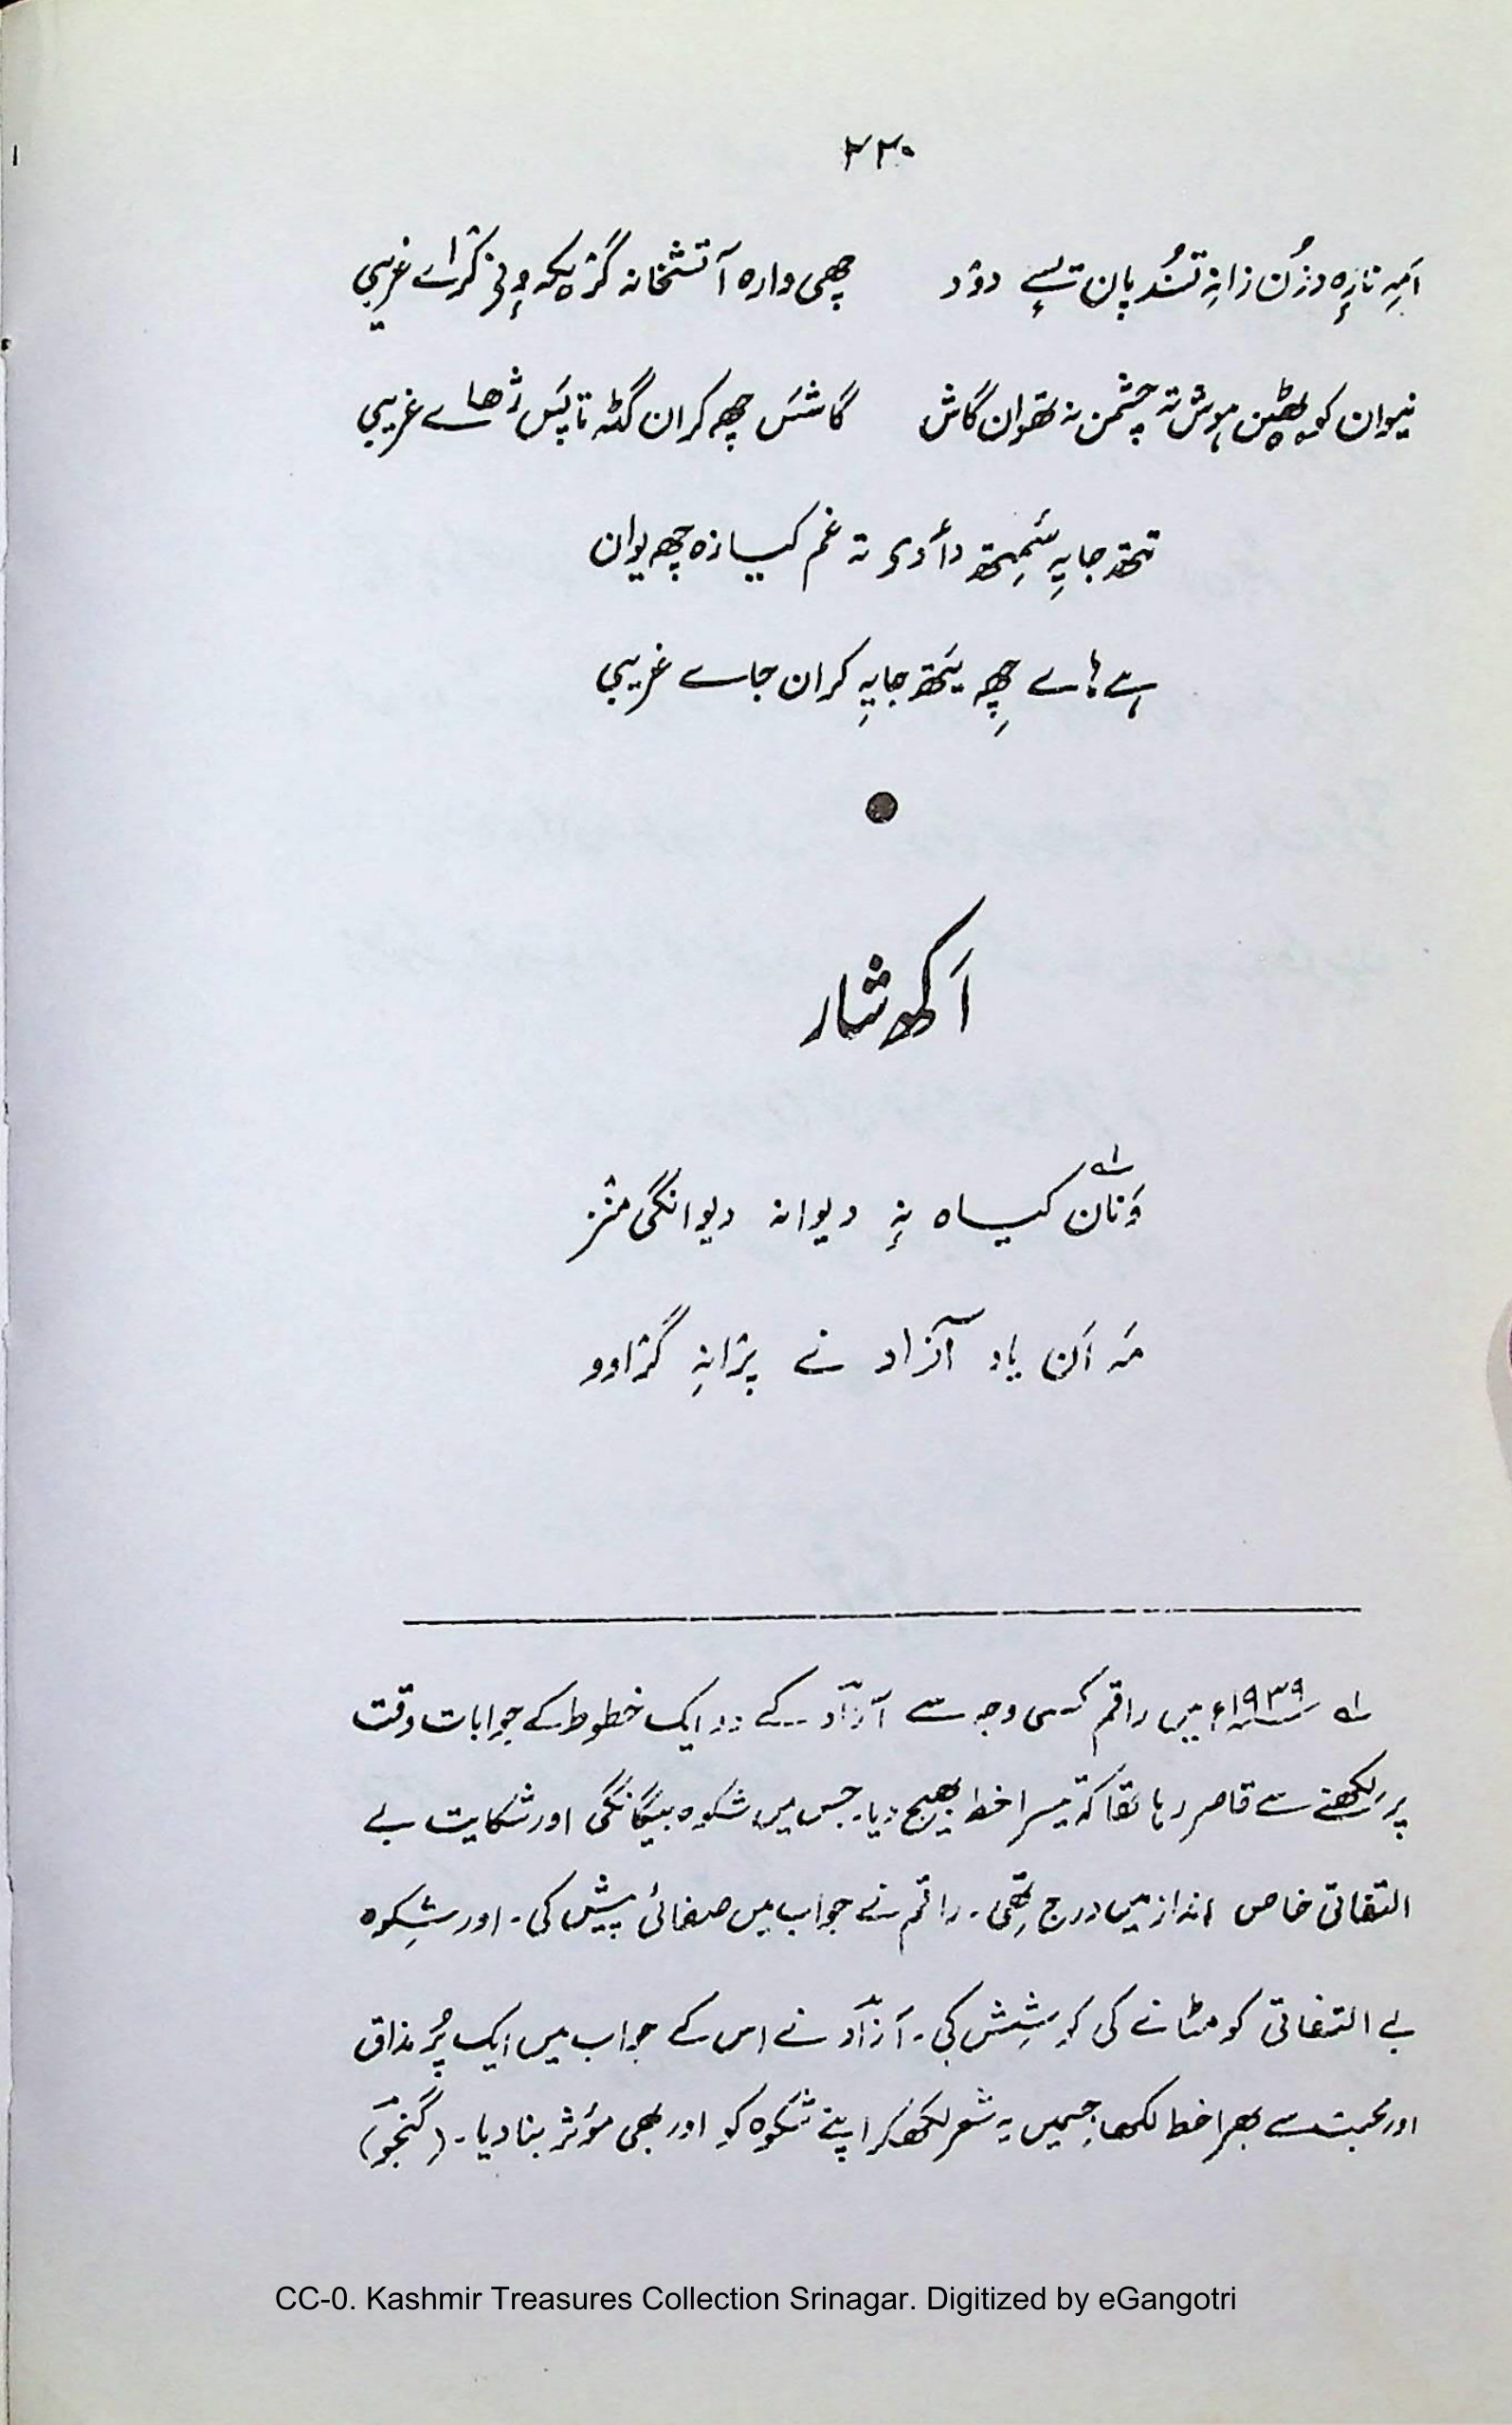 ۳۳۰
اَمہِ نازِہ دزُن زانہِ تسُند پان تسٕے دوٚد چھی وارہ آتشخانہ گژیکہ وٕنۍ کرٛاے غریبی
نیوان کوٚٹھین ہوش تہ چشمن نہ تھوان گاش گاشَس چھہ کران گٹہ تاپَس ژھاے غریبی
تتھ جایہِ سَمِتھ دأدی تہ غم کیازہ چھہ یوان
ہے ہاے چھِہ یَتھ جایہِ کران جاے غریبی
اَکھ شار
وَنان کیاہ نہٕ دیوانہ دیوانگی منٛز لہ
مَہ اَن یاد آزاد نے پرٛانہِ گرٛاوو
لہ ۱۹۳۹ء میں راقم کسی وجہ سے آزاد کے دو ایک خطوط کے جوابات وقت
پر لکھنے سے قاصر رہا تھا کہ تیسرا خط بھیج دیا۔ جس میں شکوہ بیگانگی اور شکایت بے
التفاتی خاص انداز میں درج تھی۔ راقم نے جواب میں صفائی پیش کی۔ اور شکِوہ
بے التفاتی کو مٹانے کی کوشِش کی۔ آزاد نے اس کے جواب میں ایک پُر مذاق
اور محبت سے بھرا خط لکھا جسمیں یہ شعر لکھکر اپنے شکوہ کو اور بھی مؤثر بنا دیا۔ (گنجو)
CC-0. Kashmir Treasures Collection Srinagar. Digitized by eGangotri